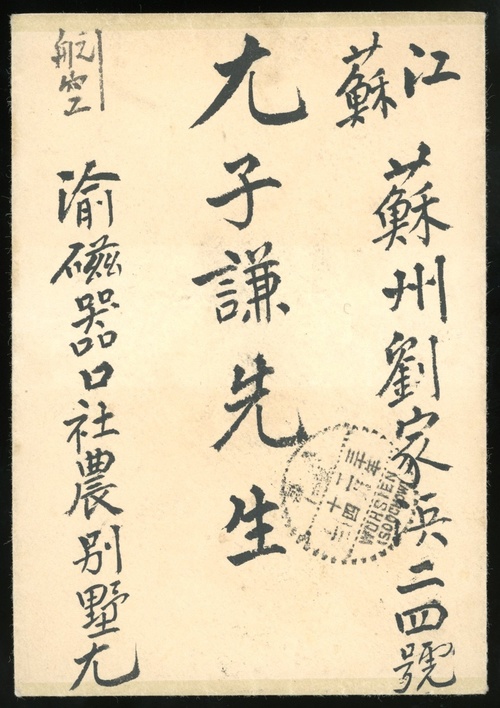 江蘇
蘇州劉家浜二四號
尤子謙先生
航空
渝磁器口社農別墅尤
WUHSIEN
(SOOCHOW)